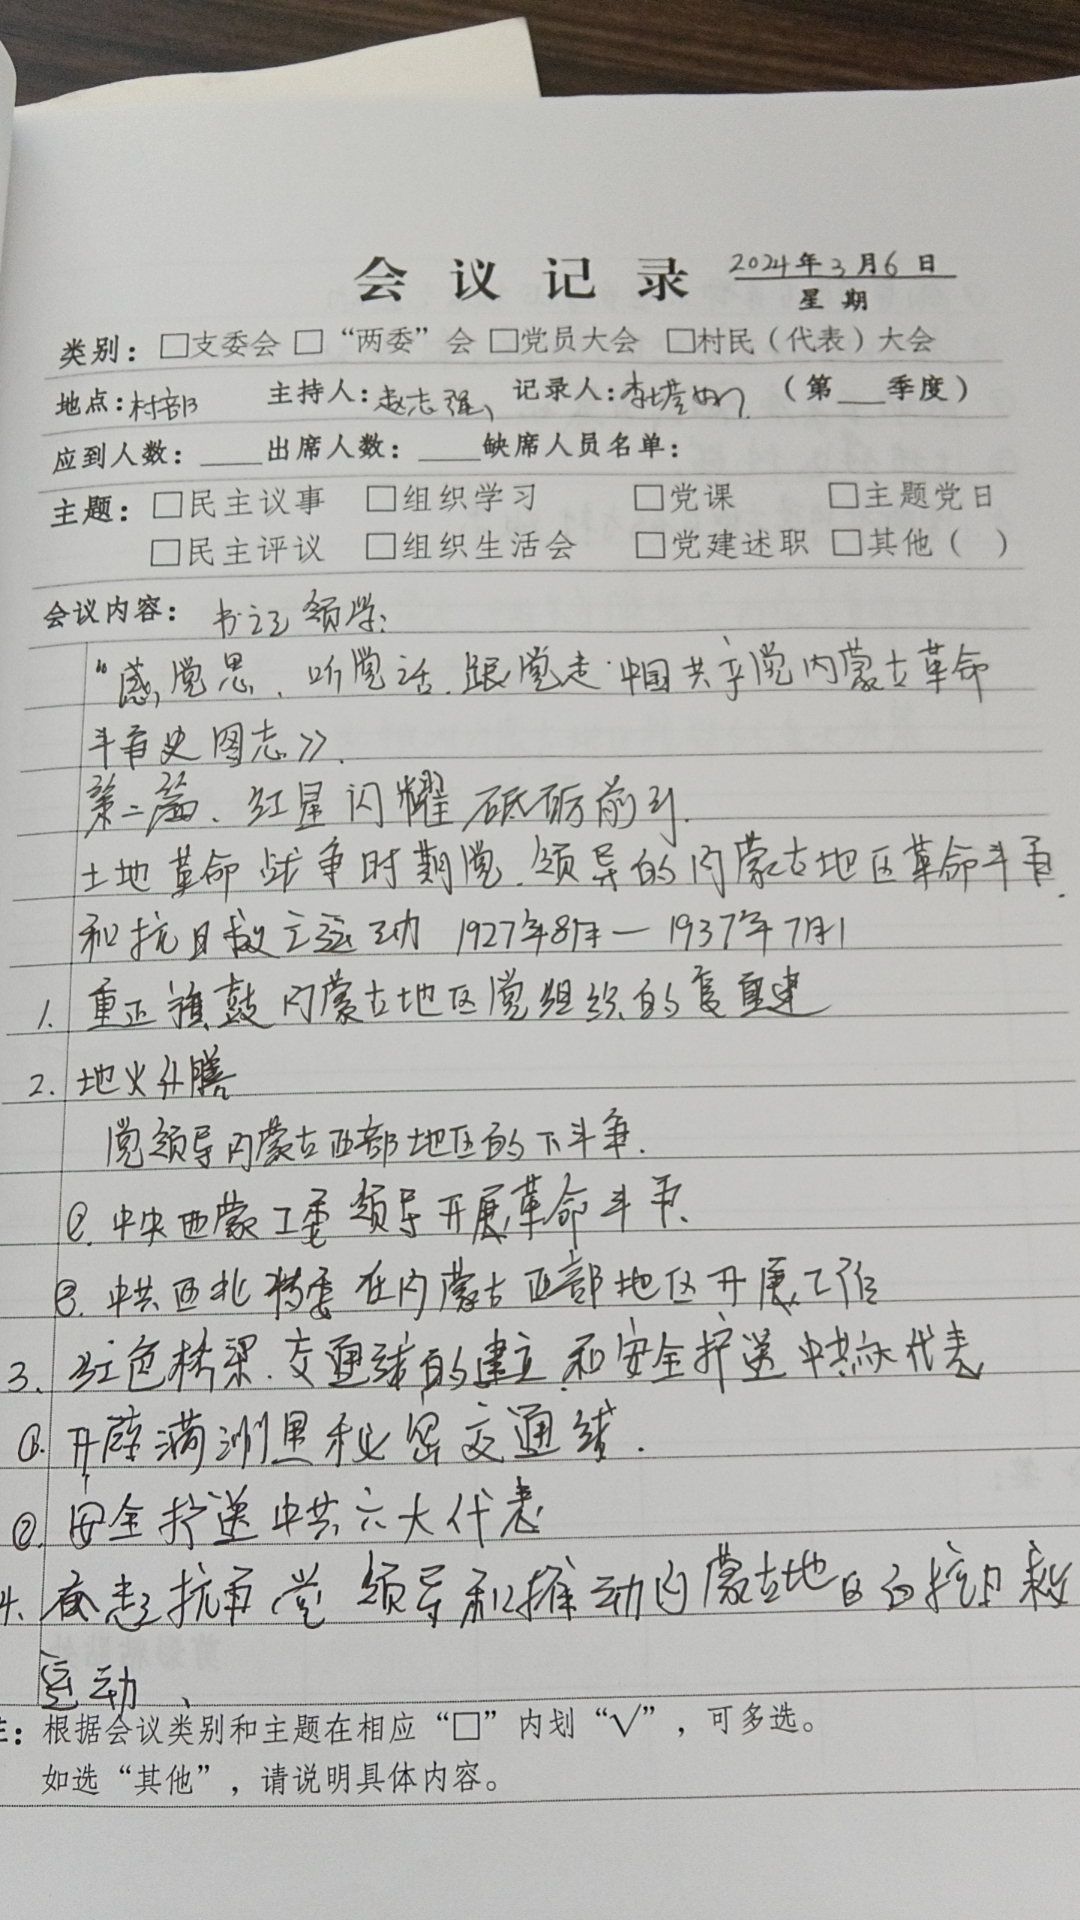 会议记录 2024年3月6日
星期
类别：□支委会 □“两委”会 □党员大会 □村民（代表）大会
地点：村部 主持人：赵志强 记录人：李 （第___季度）
应到人数：____出席人数：____缺席人员名单：
主题：□民主议事 □组织学习 □党课 □主题党日
□民主评议 □组织生活会 □党建述职 □其他（ ）
会议内容：书记领学：
“感党恩、听党话、跟党走·中国共产党内蒙古革命
斗争史图志》.
第二篇、红星闪耀 砥砺前行.
土地革命战争时期党.领导的内蒙古地区革命斗争.
和抗日救亡运动 1927年8月—1937年7月
1. 重正旗鼓内蒙古地区党组织的复重建
2. 地火升腾
党领导内蒙古西部地区的下斗争.
①.中央西蒙工委领导开展革命斗争.
②.中共西北特委在内蒙古西部地区开展工作
3. 红色桥梁.交通线的建立和安全护送中共六大代表
①.开辟满洲里秘密交通线.
②.安全护送中共六大代表
4. 奋起抗争党领导和推动内蒙古地区的抗日救亡
运动、
注：根据会议类别和主题在相应“□”内划“√”，可多选。
如选“其他”，请说明具体内容。